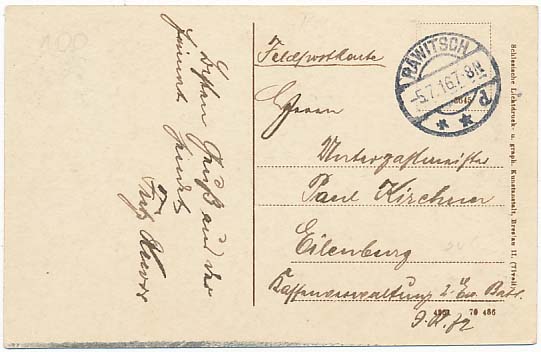 Besten Gruß aus der
Heimat sendet
Fritz
Feldpostkarte
RAWITSCH
-5.7.16.7-8N
d
Herrn
Unterzahlmeister
Paul Kirchner
Eilenburg
Kassenverwaltung 2. Ers. Batl.
I. R. 72
4961 70 486
Schlesische Lichtdruck- u. graph. Kunstanstalt, Breslau II. (Tivoli)